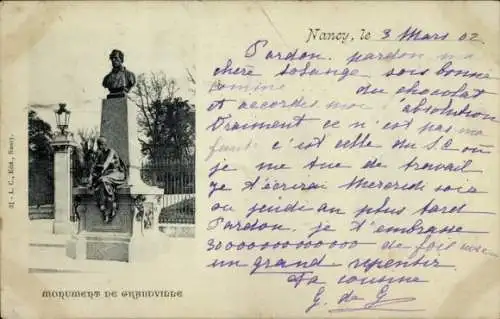 Nancy, le 3 Mars 02
Pardon, pardon ma
chère Solange sois bonne
comme du chocolat
et accordes moi l'absolution
Vraiment ce n'est pas ma
faute c'est celle du S.C ou
je me tue de travail
Je t'écrirai Mercredi soir
ou jeudi au plus tard
Pardon, je t'embrasse
de fois avec
un grand repentir
Ta cousine
G. de G
31 - L. C., Edit., Nancy.
MONUMENT DE GRANDVILLE